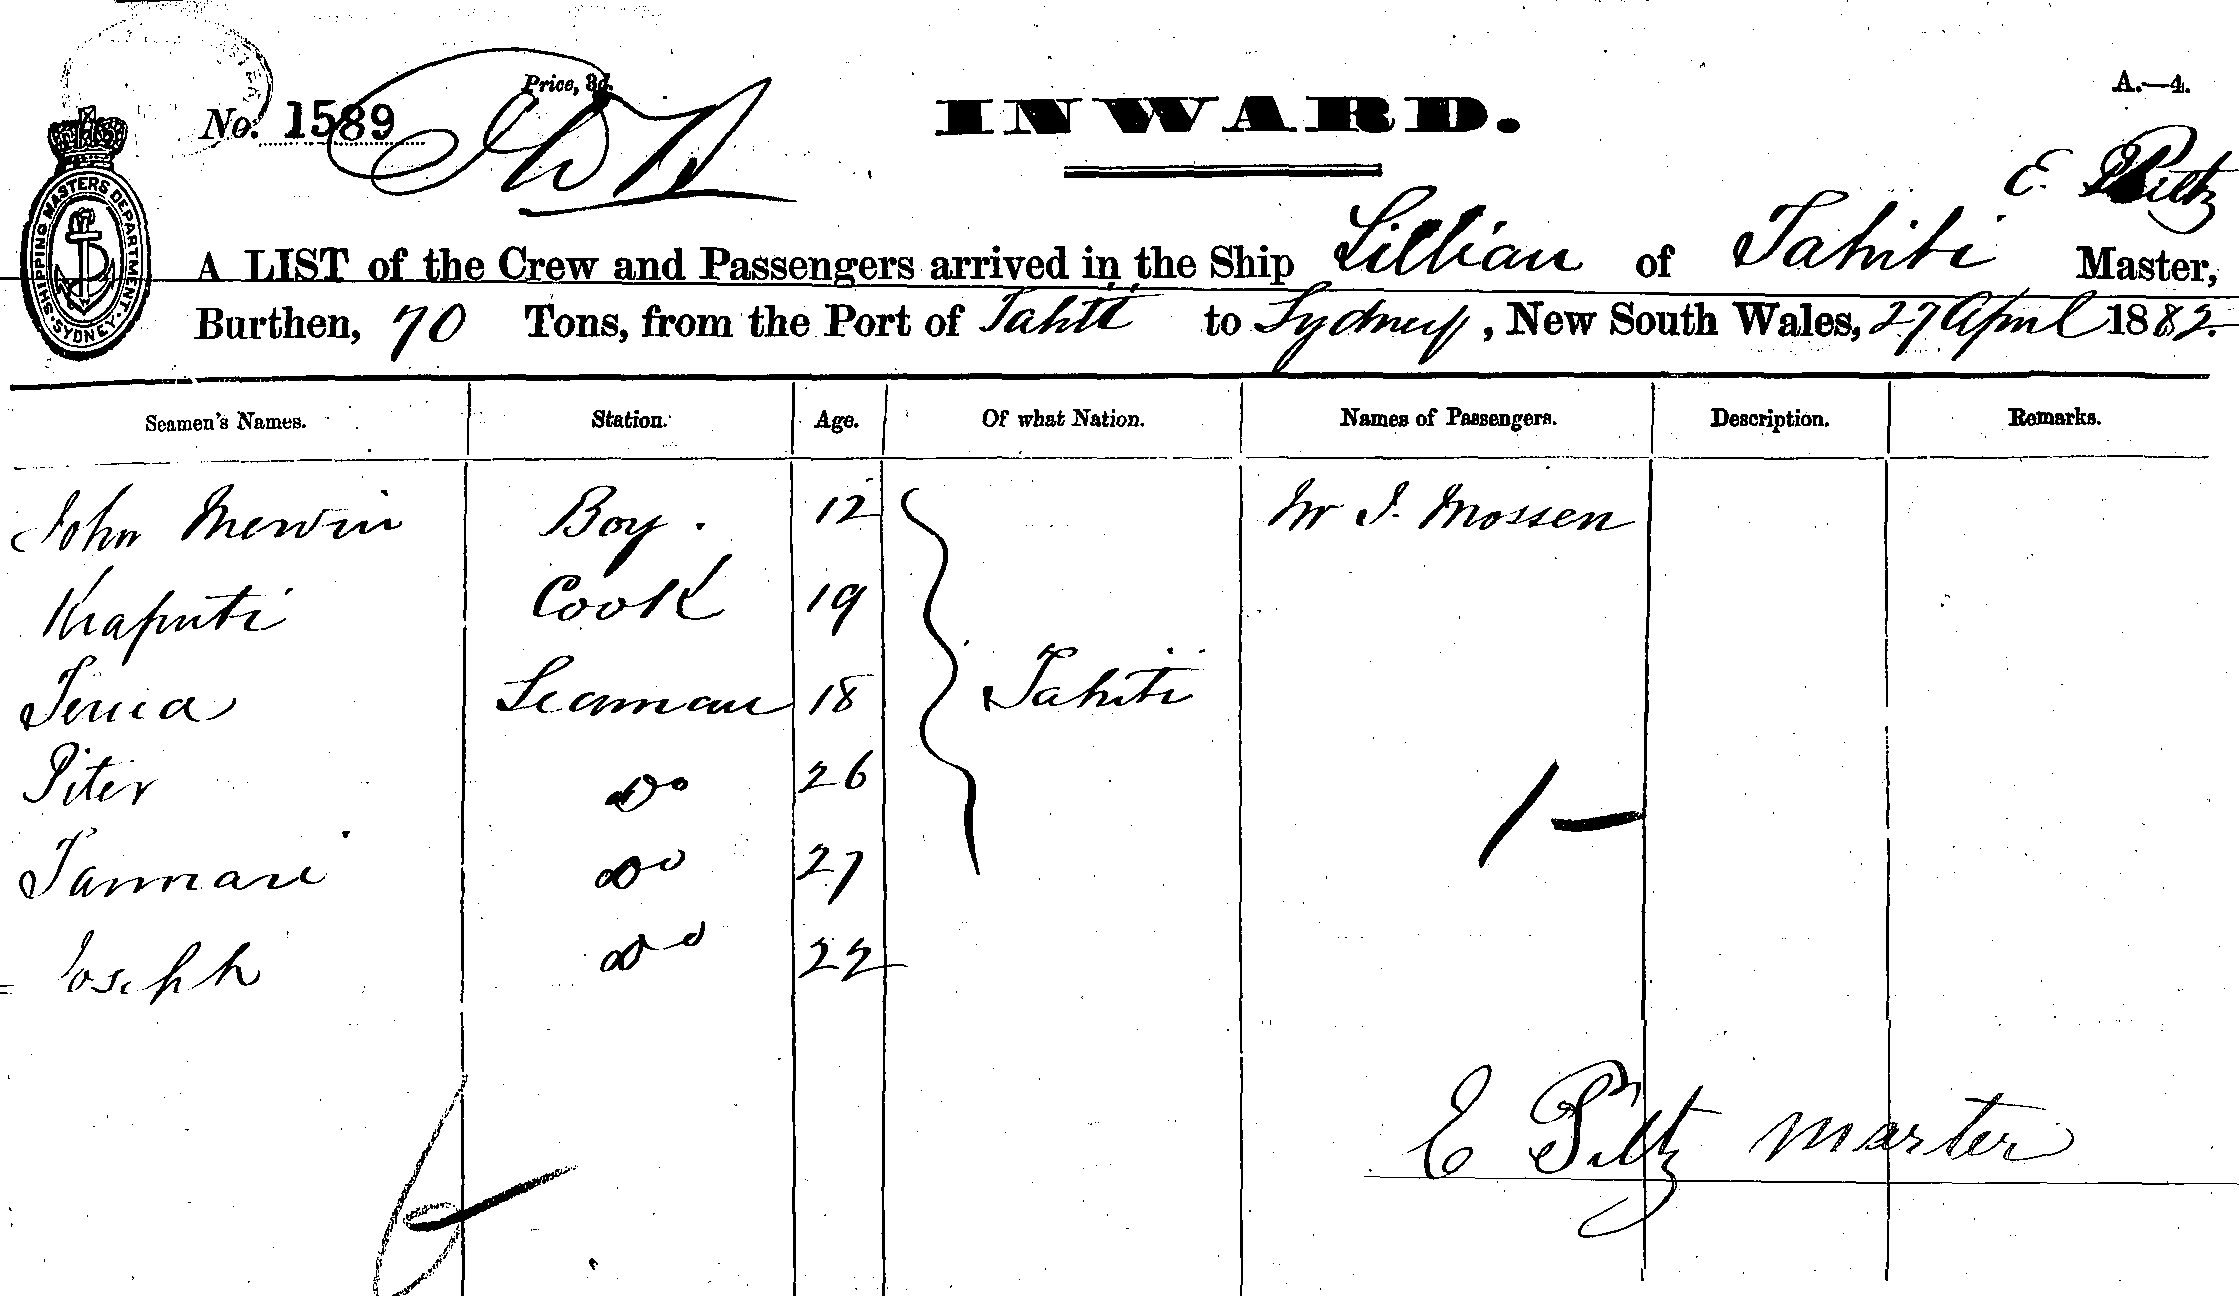 Price, 3d.
No. 1589
INWARD.
A.—4.
E. Piltz
A LIST of the Crew and Passengers arrived in the Ship Lillian of Tahiti Master,
Burthen, 70 Tons, from the Port of Tahiti to Sydney, New South Wales, 27 April 1882.
SHIPPING MASTERS DEPARTMENT · SYDNEY ·
Seamen's Names. Station. Age. Of what Nation. Names of Passengers. Description. Remarks.
John Merwin Boy. 12 Mr J. Mossen
Kraputi Cook 19
Seaman 18 Tahiti
Piter Do 26
Do 27
Joseph Do 22
1
E Piltz master
6